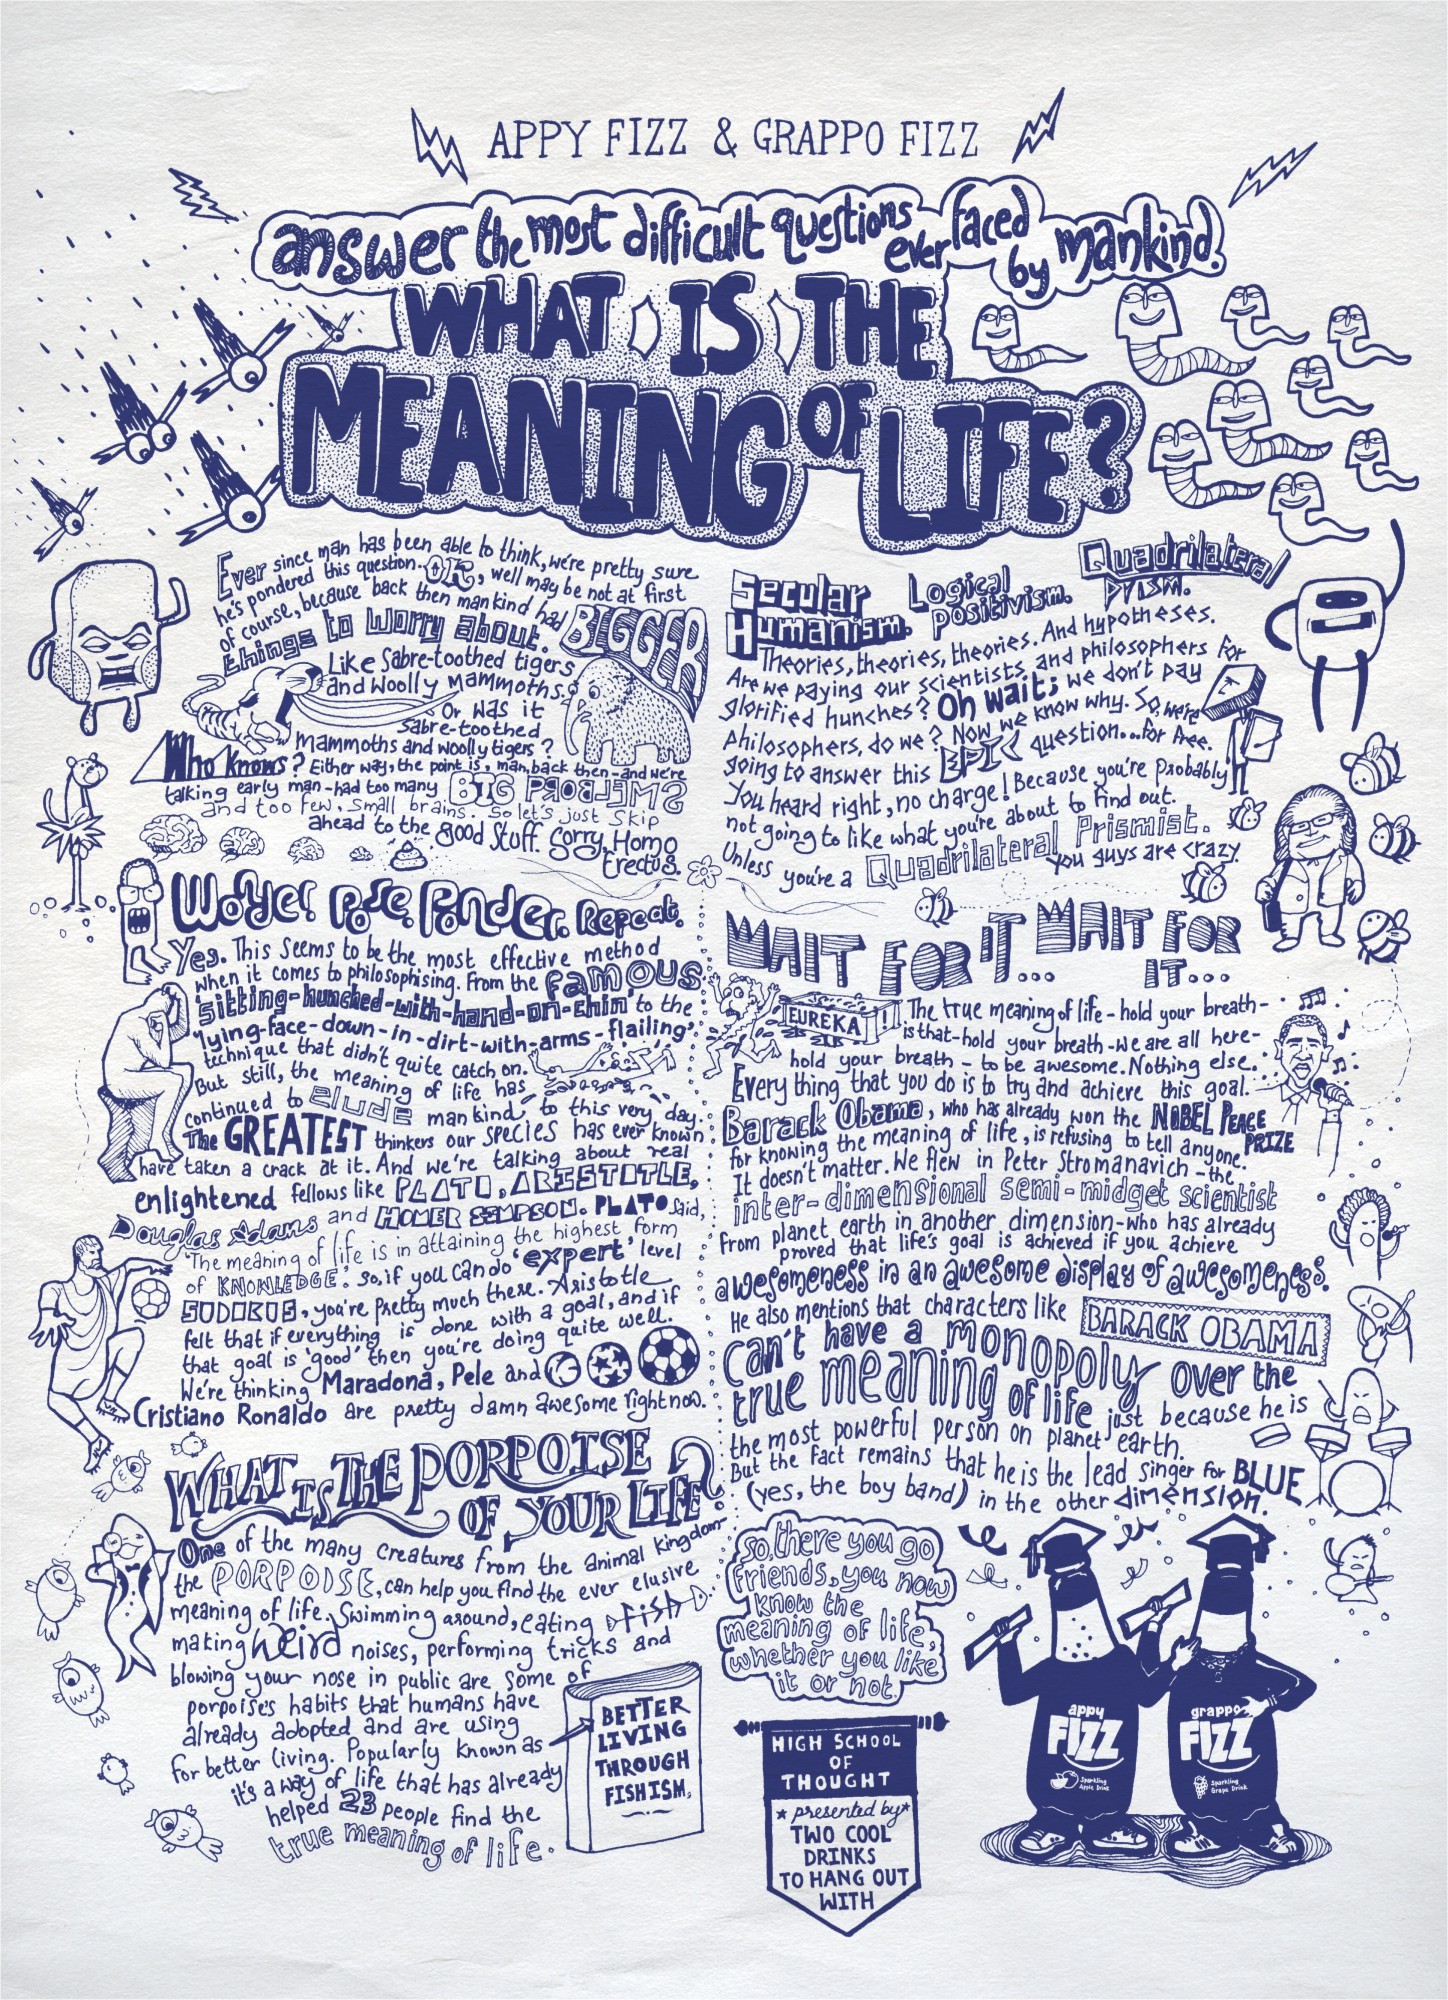 APPY FIZZ & GRAPPO FIZZ
answer the most difficult questions ever faced by mankind.
WHAT IS THE
MEANING OF LIFE?
Ever since man has been able to think, we're pretty sure
he's pondered this question... OK, well may be not at first
of course, because back then mankind had BIGGER
things to worry about.
Like Sabre-toothed tigers
and Woolly Mammoths.
Or was it
Sabre-toothed
Mammoths and woolly tigers?
Who knows? Either way, the point is, man back then - and we're
talking early man - had too many BIG PROBLEMS
and too few, small brains. So let's just skip
ahead to the good stuff. Sorry, Homo
Erectus.
Wonder. Pose. Ponder. Repeat.
Yes. This seems to be the most effective method
when it comes to philosophising. From the famous
'sitting-hunched-with-hand-on-chin' to the
'lying-face-down-in-dirt-with-arms-flailing'
technique that didn't quite catch on.
But still, the meaning of life has
continued to elude mankind to this very day.
The GREATEST thinkers our species has ever known
have taken a crack at it. And we're talking about real
enlightened fellows like PLATO, ARISTOTLE,
Douglas Adams and HOMER SIMPSON. PLATO said,
'The meaning of life is in attaining the highest form
of KNOWLEDGE'. So, if you can do 'expert' level
SUDOKUS, you're pretty much there. Aristotle
felt that if everything is done with a goal, and if
that goal is 'good' then you're doing quite well.
We're thinking Maradona, Pele and
Cristiano Ronaldo are pretty damn awesome right now.
WHAT IS THE PORPOISE
OF YOUR LIFE?
One of the many creatures from the animal kingdom-
the PORPOISE, can help you find the ever elusive
meaning of life. Swimming around, eating fish
making weird noises, performing tricks and
blowing your nose in public are some of
porpoise's habits that humans have
already adopted and are using
for better living. Popularly known as
it's a way of life that has already
helped 23 people find the
true meaning of life.
BETTER
LIVING
THROUGH
FISHISM.
Secular
Humanism.
Logical
positivism.
Quadrilateral
prism.
Theories, theories, theories. And hypotheses.
Are we paying our scientists and philosophers for
glorified hunches? Oh wait; we don't pay
philosophers, do we? Now we know why. So, we're
going to answer this EPIC question... for free.
You heard right, no charge! Because you're probably
not going to like what you're about to find out.
Unless you're a Quadrilateral Prismist.
You guys are crazy.
WAIT FOR IT... WAIT FOR
IT...
EUREKA!
The true meaning of life - hold your breath -
is that - hold your breath - we are all here -
hold your breath - to be awesome. Nothing else.
Every thing that you do is to try and achieve this goal.
Barack Obama, who has already won the NOBEL PEACE
PRIZE
for knowing the meaning of life, is refusing to tell anyone.
It doesn't matter. We flew in Peter Stromanavich - the
inter-dimensional semi-midget scientist
from planet earth in another dimension - who has already
proved that life's goal is achieved if you achieve
awesomeness in an awesome display of awesomeness.
He also mentions that characters like BARACK OBAMA
can't have a monopoly over the
true meaning of life just because he is
the most powerful person on planet earth.
But the fact remains that he is the lead singer for BLUE
(yes, the boy band) in the other dimension.
So, there you go
friends, you now
know the
meaning of life,
whether you like
it or not.
HIGH SCHOOL
OF
THOUGHT
★ presented by ★
TWO COOL
DRINKS
TO HANG OUT
WITH
appy
FIZZ
Sparkling
Apple Drink
grappo
FIZZ
Sparkling
Grape Drink